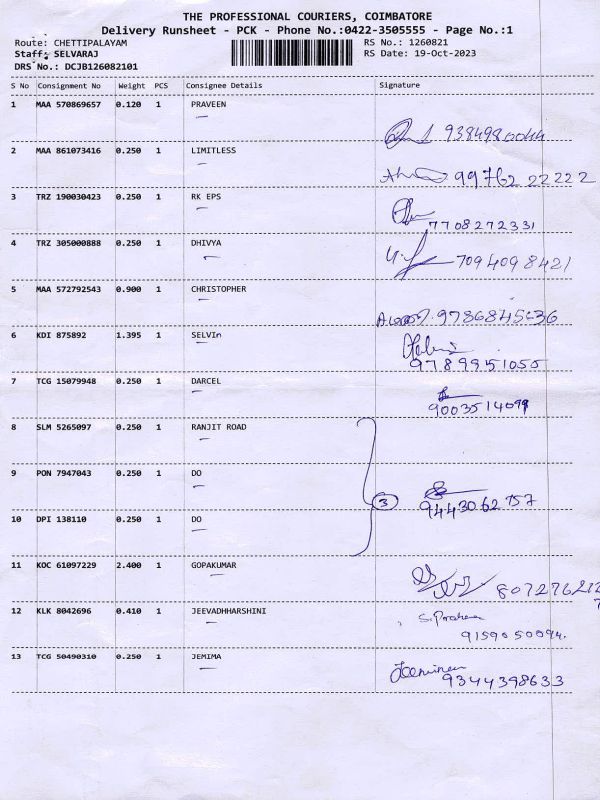 THE PROFESSIONAL COURIERS, COIMBATORE
Delivery Runsheet - PCK - Phone No.:0422-3505555 - Page No.:1
Route: CHETTIPALAYAM RS No.: 1260821
Staff: SELVARAJ RS Date: 19-Oct-2023
DRS No.: DCJB126082101
S No Consignment No Weight PCS Consignee Details Signature
1 MAA 570869657 0.120 1 PRAVEEN
9384980044
2 MAA 861073416 0.250 1 LIMITLESS
99762 22222
3 TRZ 190030423 0.250 1 RK EPS
7708272331
4 TRZ 305000888 0.250 1 DHIVYA
7094098421
5 MAA 572792543 0.900 1 CHRISTOPHER
6 KDI 875892 1.395 1 SELVIn
9789951055
7 TCG 15079948 0.250 1 DARCEL
8 SLM 5265097 0.250 1 RANJIT ROAD
9 PON 7947043 0.250 1 DO
3
9443062757
10 DPI 138110 0.250 1 DO
11 KOC 61097229 2.400 1 GOPAKUMAR
12 KLK 8042696 0.410 1 JEEVADHHARSHINI
9159050094.
13 TCG 50490310 0.250 1 JEMIMA
9344398633